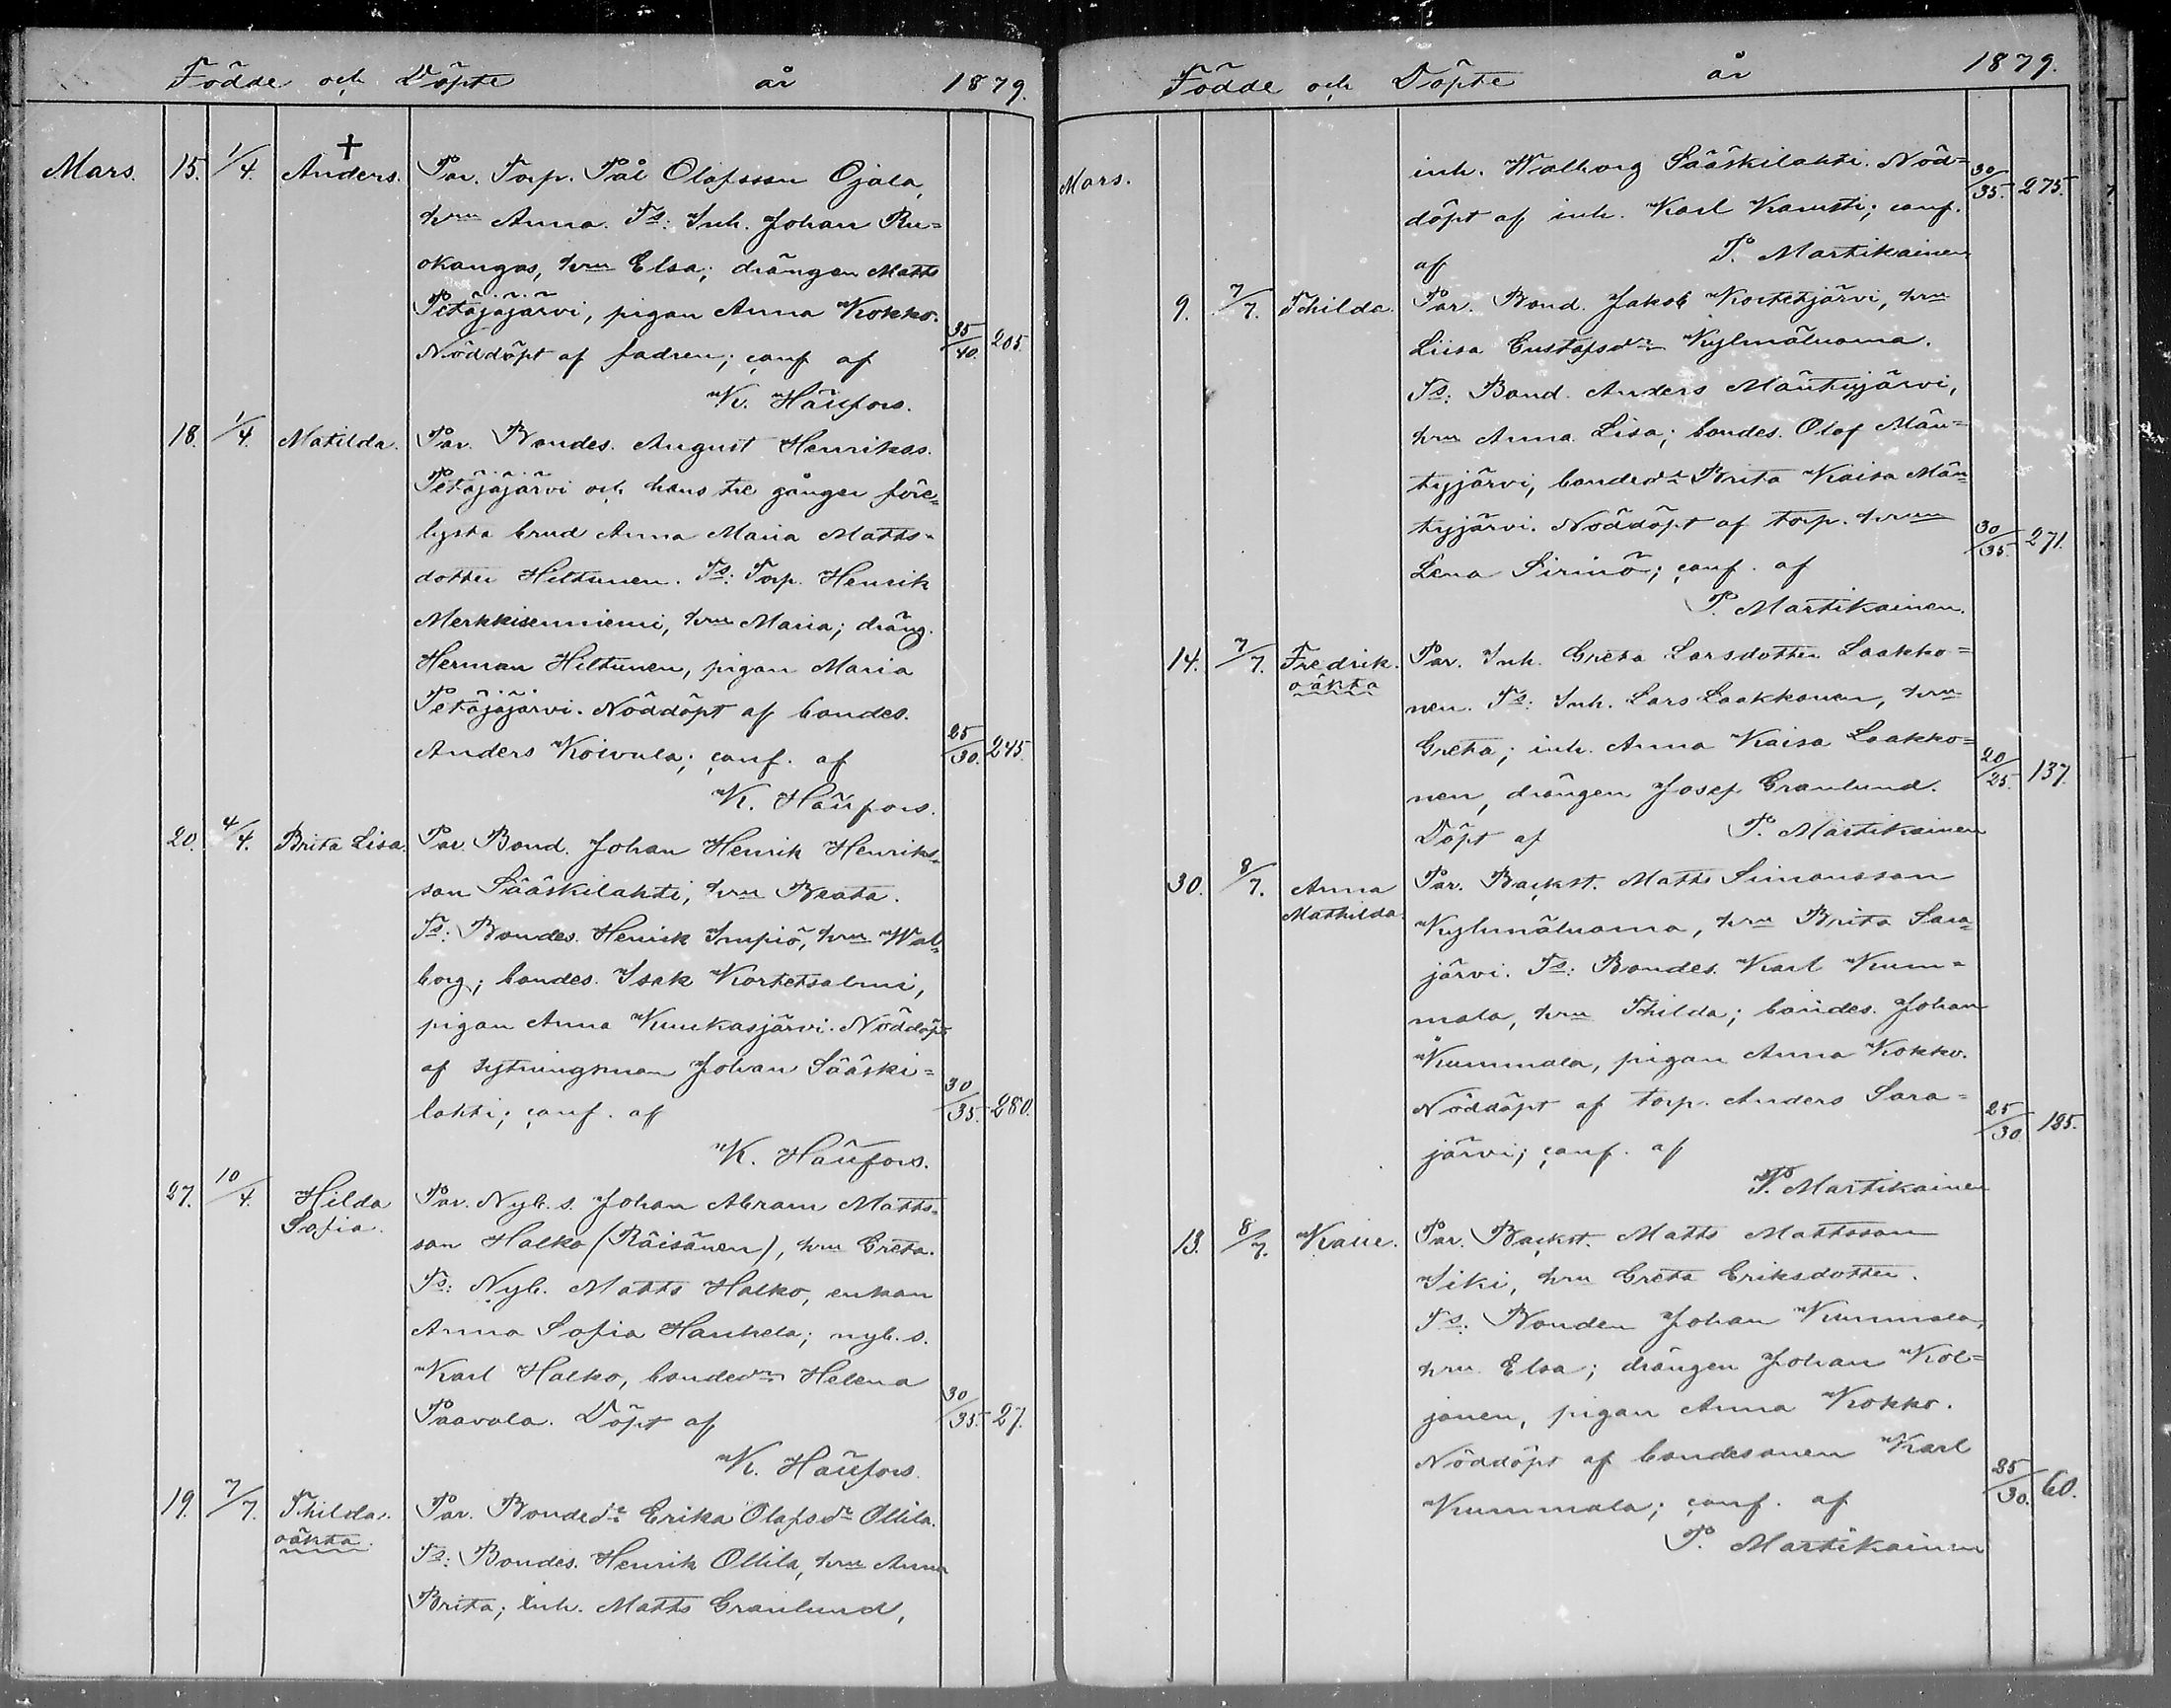 Födde och Döpte år 1879.
Mars. 15. 1/4. † Anders. Par. Torp. Pål Olofsson Ojala,
hru Anna. Ts: Inh. Johan Ru=
okangas, hru Elsa; drängen Matts
Petäjäjärvi, pigan Anna Kokko.
Nöddöpt af fadren; conf af 35/40. 205.
K. Häufors.
18. 1/4. Matilda. Par. Bondes. August Henrikss.
Petäjäjärvi och hans tre gånger före=
lysta brud Anna Maria Matts=
dotter Hiltunen. Ts: Torp. Henrik
Merkkisenniemi, hru Maria; dräng.
Herman Hiltunen, pigan Maria
Petäjäjärvi. Nöddöpt af bondes.
Anders Koivula; conf. af 25/30. 245.
K. Häufors.
20. 4/4. Brita Lisa. Par. Bond. Johan Henrik Henriks=
son Sääskilahti, hru Beata.
Ts: Bondes. Henrik Impiö, hru Wal=
borg; bondes. Isak Kortetsalmi,
pigan Anna Kuukasjärvi. Nöddöpt
af sytningsman Johan Sääski=
lahti; conf. af 30/35. 280.
K. Häufors.
27. 10/4. Hilda Par. Nyb. s. Johan Abram Matts=
Sofia. son Halko (Räisänen), hru Greta.
Ts: Nyb. Matts Halko, enkan
Anna Sofia Hankela; nyb. s.
Karl Halko, bondedr Helena
Paavola. Döpt af 30/35. 27.
K. Häufors.
19. 7/7. Thilda. Par. Bondedr Erika Olofsdr Ollila.
oäkta. Ts: Bondes. Henrik Ollila, hru Anna
Brita; inh. Matts Granlund,
Födde och Döpte år 1879.
Mars. inh. Walborg Sääskilahti. Nöd= 30/35. 275.
döpt af inh. Karl Karusti; conf.
af P. Martikainen
9. 7/7. Thilda. Par. Bond. Jakob Kortetjärvi, hru
Liisa Gustafsdr Kylmäluoma.
Ts: Bond. Anders Mäntyjärvi,
hru Anna Lisa; bondes. Olof Män=
tyjärvi, bondedr Brita Kaisa Män=
tyjärvi. Nöddöpt af torp. hrun 30/35. 271.
Lena Siriniö; conf. af
P. Martikainen.
14. 7/7. Fredrik. Par. Inh. Greta Larsdotter Laakko=
oäkta nen. Ts: Inh. Lars Laakkonen, hru
Greta; inh. Anna Kaisa Laakko=
nen, drängen Josef Granlund. 20/25. 137.
Döpt af P. Martikainen
30. 8/7. Anna Par. Backst. Matts Simonsson
Mathilda. Kylmäluoma, hru Brita Sara=
järvi. Ts: Bondes. Karl Kum=
mala, hru Thilda; bondes. Johan
Kummala, pigan Anna Kokko.
Nöddöpt af torp. Anders Sara=
järvi; conf. af 25/30. 185.
P. Martikainen
13. 8/7. Kalle. Par. Backst. Matts Mattsson
Siki, hru Greta Eriksdotter.
Ts: Bonden Johan Kummala,
hru Elsa; drängen Johan Kol=
jonen, pigan Anna Kokko.
Nöddöpt af bondesonen Karl
Kummala; conf. af 25/30. 60.
P. Martikainen